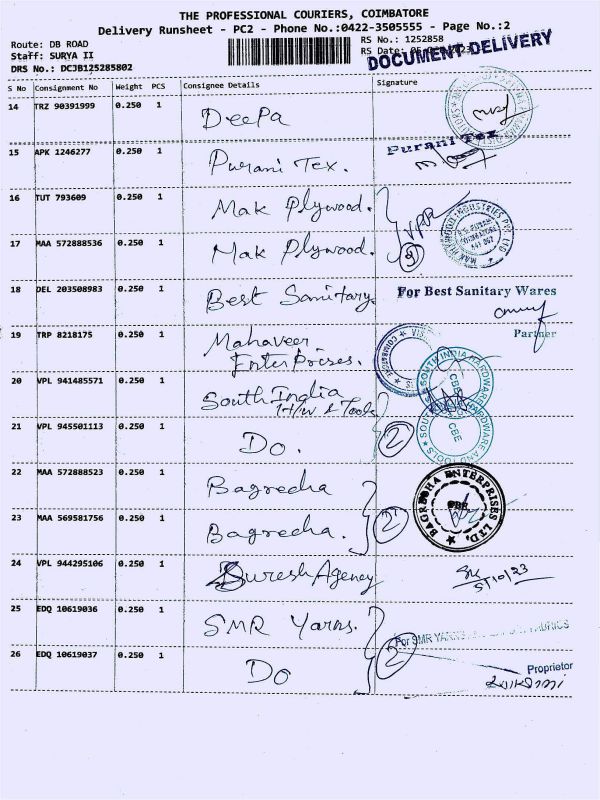 THE PROFESSIONAL COURIERS, COIMBATORE
Delivery Runsheet - PC2 - Phone No.:0422-3505555 - Page No.:2
Route: DB ROAD
Staff: SURYA II
DRS No.: DCJB125285802
RS No.: 1252858
RS Date:
DOCUMENT DELIVERY
S No Consignment No Weight PCS Consignee Details Signature
14 TRZ 90391999 0.250 1 Deepa
15 APK 1246277 0.250 1 Purani Tex. Purani Tex
16 TUT 793609 0.250 1 Mak Plywood.
17 MAA 572888536 0.250 1 Mak Plywood. 2
MAK PLYWOOD INDUSTRIES PVT LTD
18 DEL 203508983 0.250 1 Best Sanitary For Best Sanitary Wares
Partner
19 TRP 8218175 0.250 1 Mahaveer Enterprises.
20 VPL 941485571 0.250 1 South India H/w & Tools
SOUTH INDIA HARDWARE AND TOOLS
CBE
21 VPL 945501113 0.250 1 Do. 2
CBE
22 MAA 572888523 0.250 1 Bagrecha
BAGRECHA ENTERPRISES LTD,
CBE
23 MAA 569581756 0.250 1 Bagrecha. 2
24 VPL 944295106 0.250 1 Suresh Agency 5/10/23
25 EDQ 10619036 0.250 1 SMR Yarns.
For SMR YARNS FABRICS
26 EDQ 10619037 0.250 1 Do 2
Proprietor